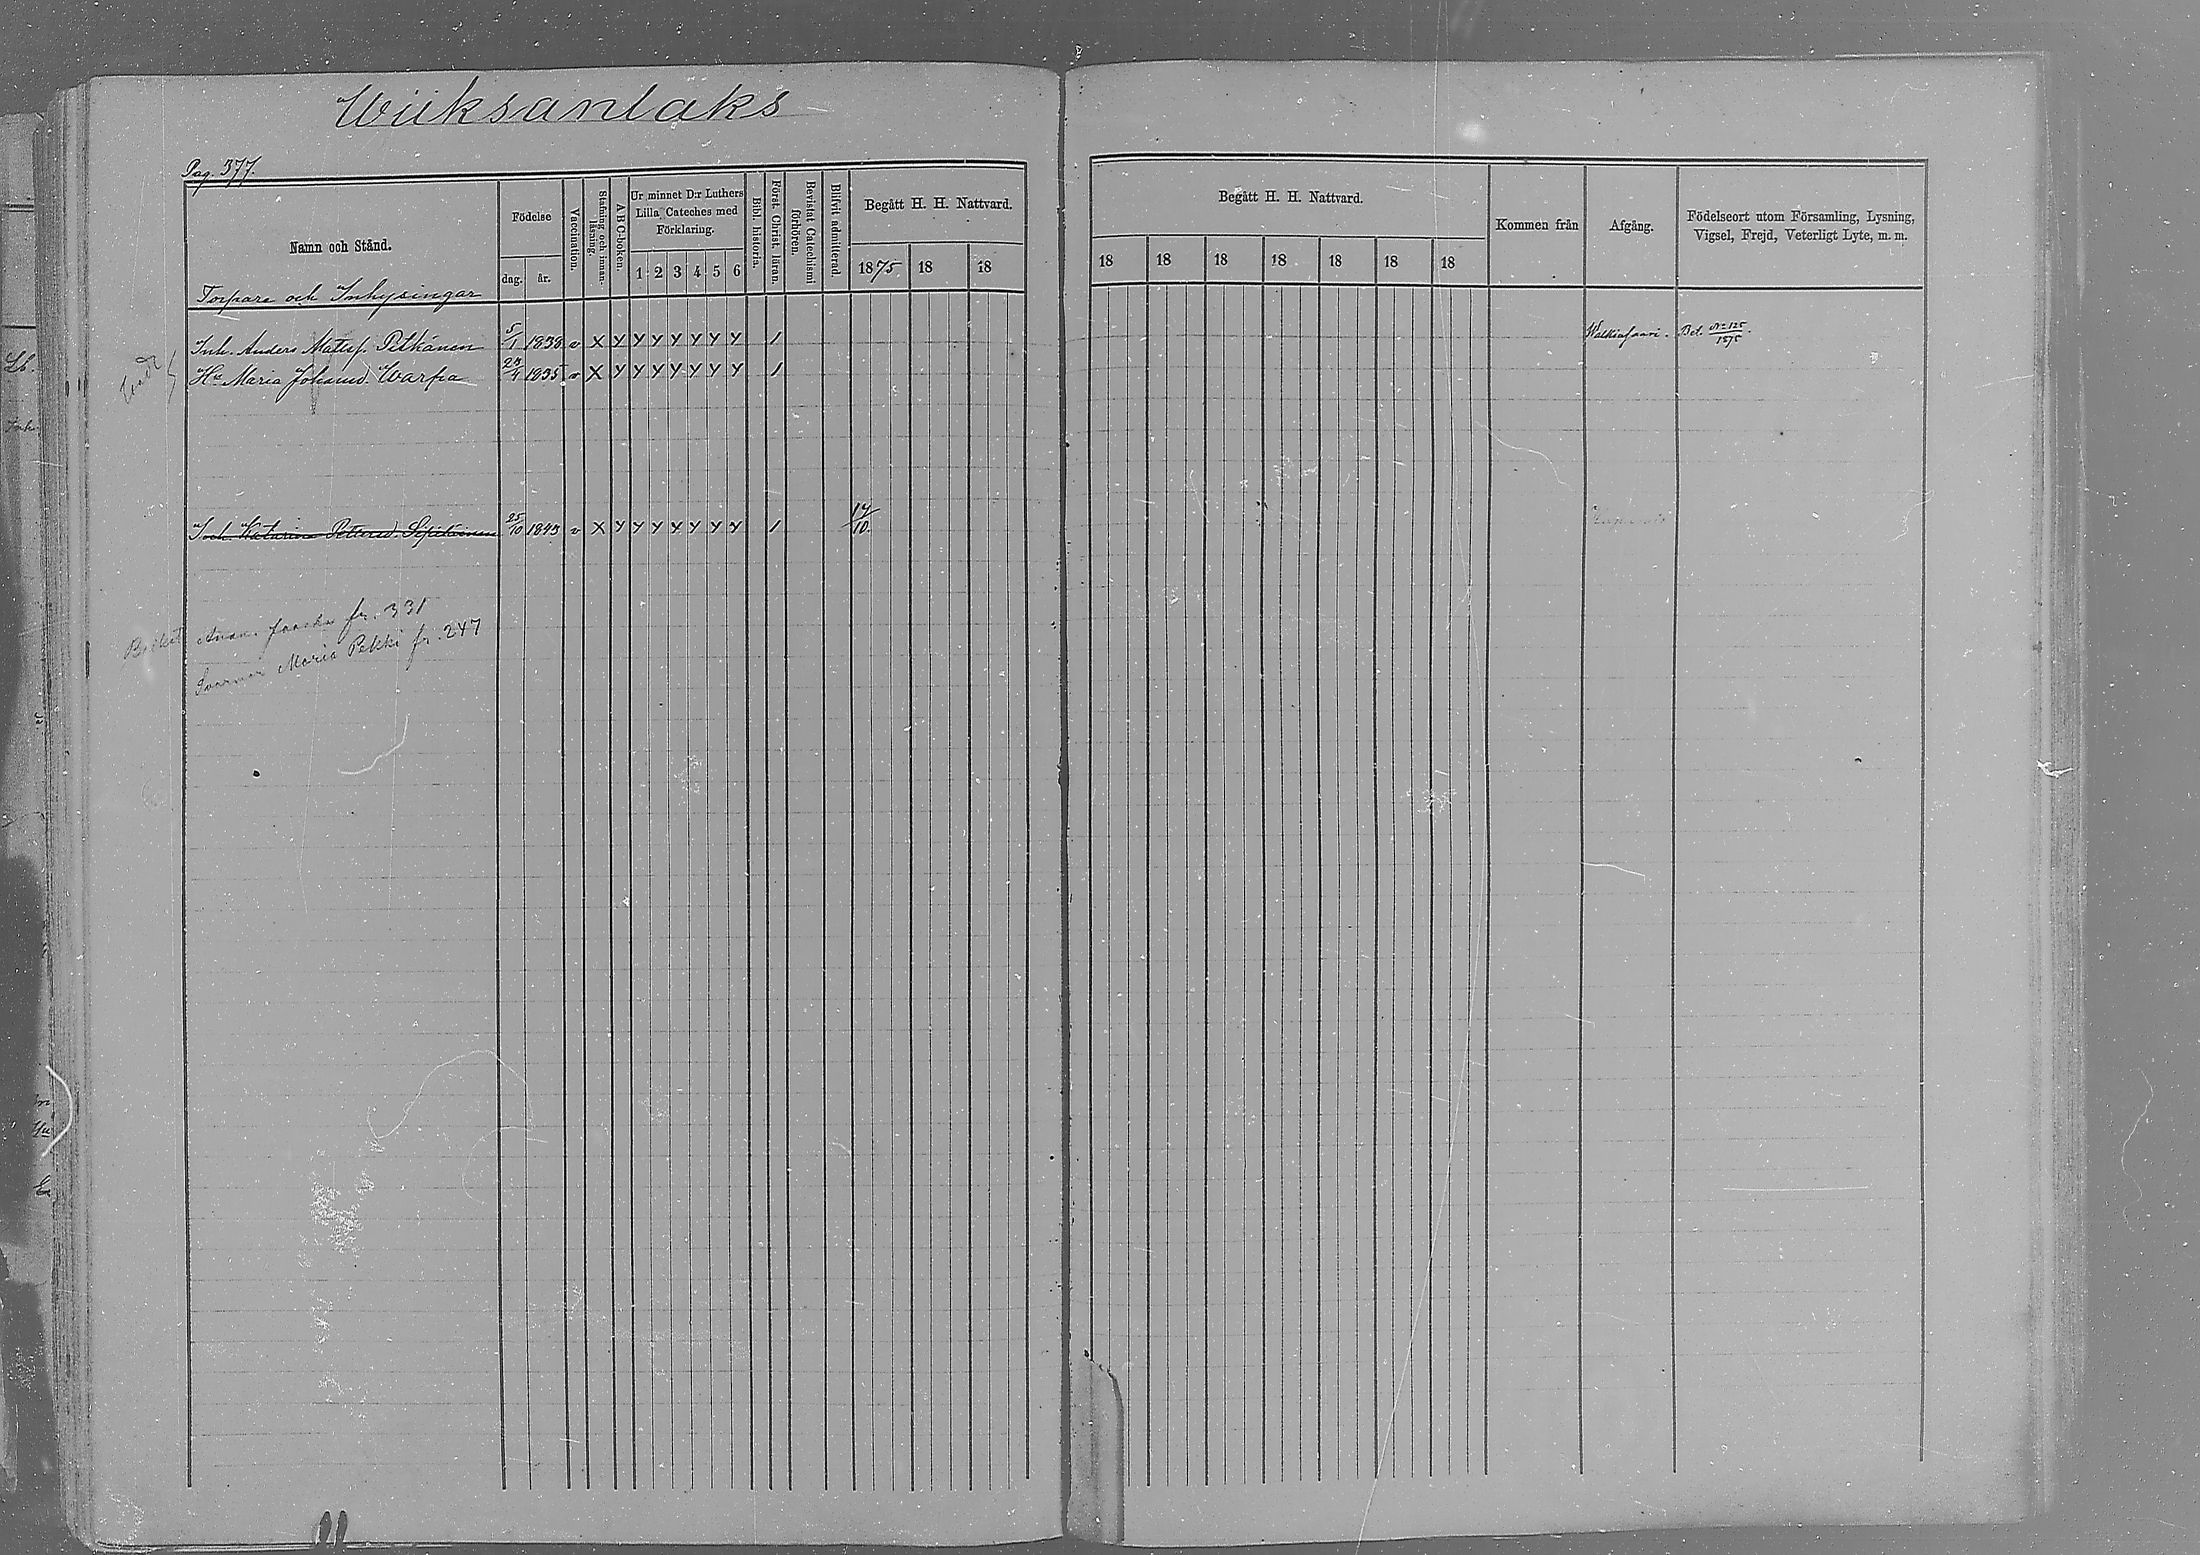 Wiiksanlaks
Pag. 377.
Namn och Stånd.
Födelse
dag. år.
Vaccination.
Stafning och innanläsning.
A B C-boken.
Ur minnet D:r Luthers Lilla Cateches med Förklaring.
1 2 3 4 5 6
Bibl. historia.
Först. Christ. läran.
Bevistat Catechismi förhören.
Blifvit admitterad
Begått H. H. Nattvard.
1875 18 18
Begått H. H. Nattvard.
18 18 18 18 18 18 18
Kommen från
Afgång.
Födelseort utom Församling, Lysning,
Vigsel, Frejd, Veterligt Lyte, m. m.
Torpare och Inhysingar
Inh. Anders Matsf. Pitkänen 5/1 1838 v X Y Y Y Y Y Y Y / Bet. No 125/1875.
Hu Maria Johansd. Warfra 1835 v X Y Y Y Y Y Y Y /
Inh. Katarina Pettersd. 25/10 1843 v X Y Y Y Y Y Y Y / 17/10
fr. 331
Maria Pekki fr. 247